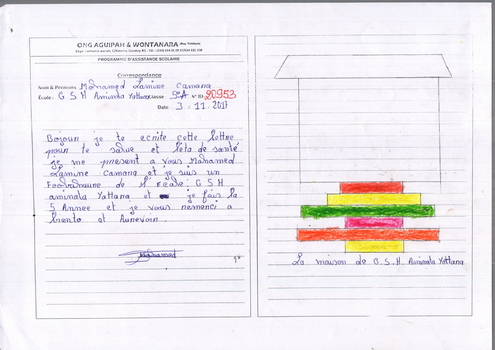 ONG AGUIPAH & WONTANARA
PROGRAMME D'ASSISTANCE SCOLAIRE
Correspondance
Nom & Prénoms Mohamed Lamine Camara
École: G S H Aminata Yattara Classe 5e A N° ID 20953
Date 3.11.2017
Bojour je te ecrite cette lettre
pour te salue et l'eta de santé
je me present a vous Mohamed
Lamine Camara et je suis un
de l'ecole: G S H
aminata Yattana et je fais la
5 Annee et je vous remenci a
bientot et Aurevoir.
Mohamed
La maison de G.S.H. Aminata Yattana